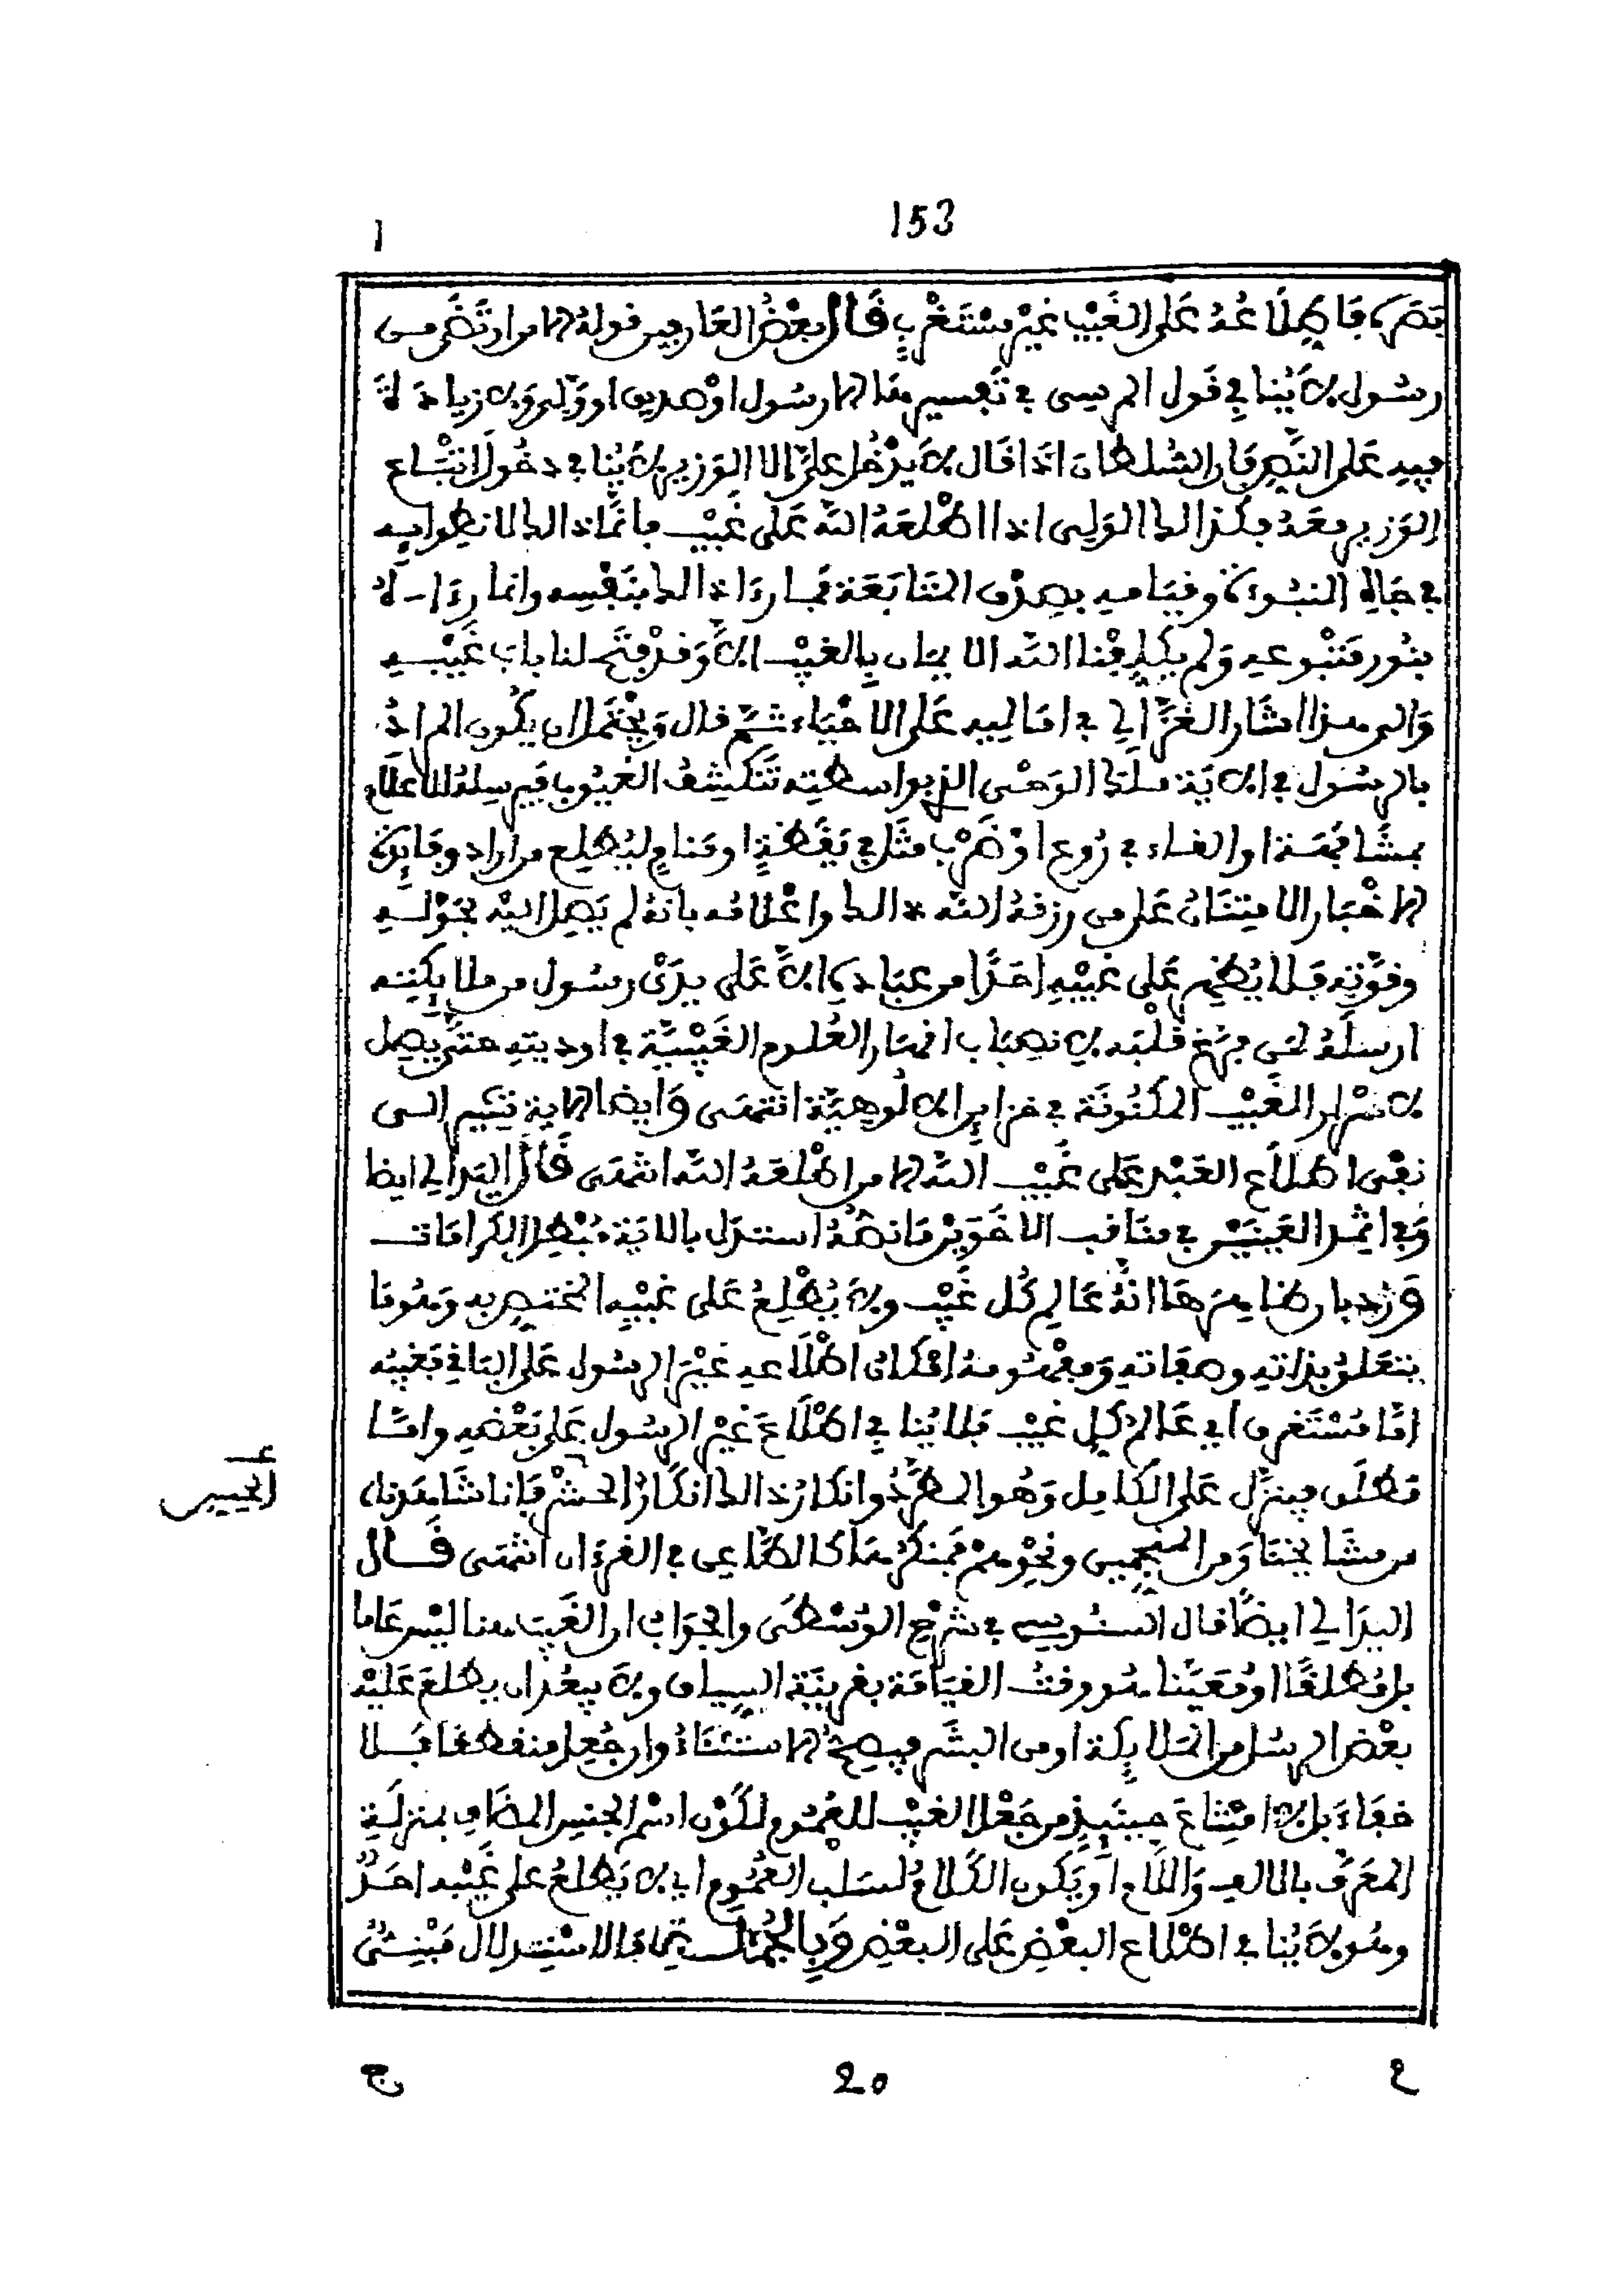 153
١
بَصَرَهُ فَاطِّلَاعُهُ عَلَى الْغَيْبِ غَيْرُ مُسْتَغْرَبٍ قَالَ بَعْضُ الْعَارِفِينَ قوله إلا من ارتضى من
رسول لا يُنافي قول المرسي في تفسيرها إلا رسول أو صديق أو ولي ولا زيادة
فيه على النص فإن السلطان إذا قال لا يدخل علي إلا الوزير لا يُنافي دخول اتباع
الوزير معه فكذلك الولي إذا أطلعه الله على غيب فإنما ذلك لانطوائه
في جاه النبوءة وقيامه بصدق المتابعة فما رءا ذلك بنفسه وإنما رءاه
بنور متبوعه ولم يكلفنا الله الإيمان بالغيب إلا وقد فتح لنا باب غيبه
وإلى هذا أشار الغزالي في أماليه على الإحياء ثم قال ويحتمل أن يكون المراد
بالرسول في الآية ملك الوحي الذي بواسطته تنكشف الغيوب فيرسله للإعلام
بمشافهة أو إلقاء في روع أو ضرب مثل في يقظة أو منام ليطلع من أراد وفائدة
الإخبار الامتنان على من رزقه الله ذلك وإعلامه بأنه لم يصل إليه بحوله
وقوته فلا يظهر على غيبه أحدا من عباده إلا على يدي رسول من ملائكته
أرسله لمن فرغ قلبه لانصباب أنهار العلوم الغيبية في أوديته حتى يصل
لأسرار الغيب المكنونة في خزاين الألوهية انتهى وأيضا الآية تشير إلى
نفي اطلاع العبد على غيب الله إلا من أطلعه الله انتهى قال اليدالي أيضا
وفي إثمد العينين في مناقب الأخوين ما نصه استدل بالآية مبطل الكرامات
ورد بأن ظاهرها أنه عالم كل غيب ولا يطلع على غيبه المختص به وهو ما
يتعلق بذاته وصفاته ومفهومه إمكان اطلاعه غير الرسول على الباقي فغيبه
إما مستغرق أي عالم كل غيب فلا ينافي اطلاع غير الرسول على بعضه وإما
مطلق فينزل على الكامل وهو المطرد وإنكار ذلك إنكار الحس فإنا شاهدناه
عـــ
الحسن
من مشايخنا ومن المنجمين ونحوهم فمنكر هذا كالطاعن في القرءان انتهى قال
اليدالي أيضا قال السنوسي في شرح الوسطى والجواب أن الغيب هنا ليس عاما
بل مطلقا أو معينا هو وقت القيامة بقرينة السياق ولا يبعد أن يطلع عليه
بعض الرسل من الملائكة أو من البشر فيصح الاستثناء وإن جعل منقطعا فلا
خفاء بل لا امتناع حينئذ من جعل الغيب للعموم لكون اسم الجنس المضاف بمنزلة
المعرف بالألف واللام أو يكون الكلام لسلب العموم أي لا يطلع على غيبه أحد
وهو لا ينافي اطلاع البعض على البعض وبالجملة فالاستدلال مبني
ع
20
ج